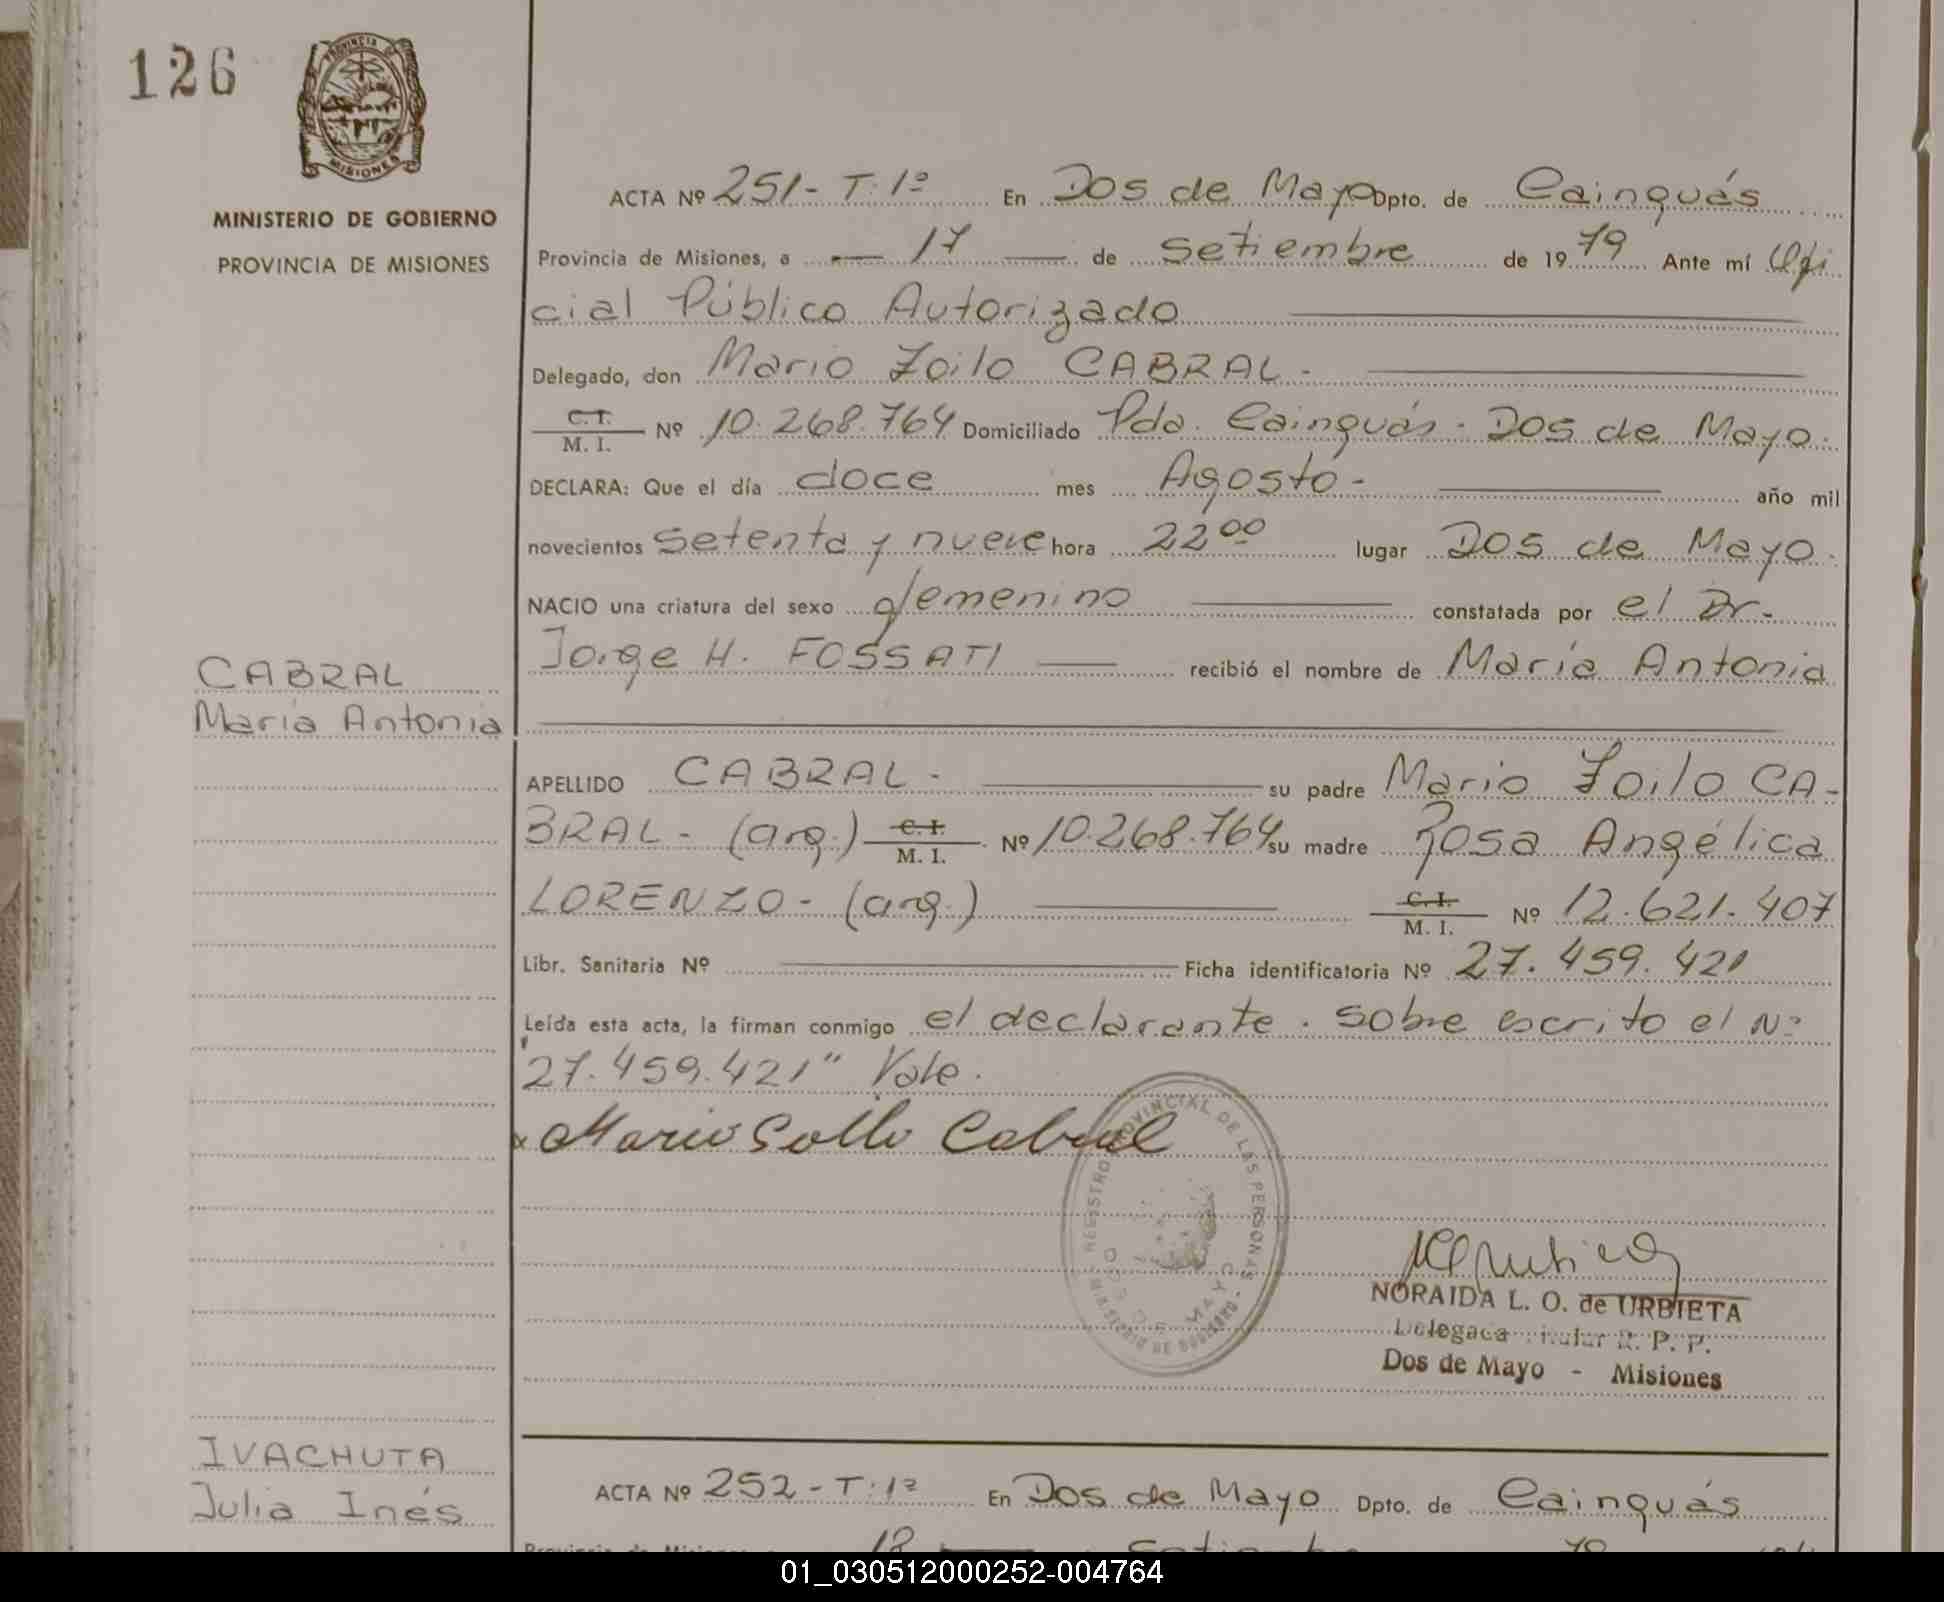 126
PROVINCIA DE
MISIONES
MINISTERIO DE GOBIERNO
PROVINCIA DE MISIONES
ACTA Nº 251- T: 1º En Dos de Mayo Dpto. de Cainguás
Provincia de Misiones, a — 17 — de setiembre de 1979 Ante mí Ofi
cial Público Autorizado
Delegado, don Mario Zoilo CABRAL -
C. I. / M. I. Nº 10.268.764 Domiciliado Pdo. Cainguás - Dos de Mayo.
DECLARA: Que el día doce mes Agosto - año mil
novecientos setenta y nueve hora 22⁰⁰ lugar Dos de Mayo.
NACIO una criatura del sexo femenino constatada por el Dr.
Jorge H. FOSSATI recibió el nombre de María Antonia
CABRAL
María Antonia
APELLIDO CABRAL - su padre Mario Zoilo CA-
BRAL - (arg.) C. I. / M. I. Nº 10.268.764 su madre Rosa Angélica
LORENZO - (arg.) C. I. / M. I. Nº 12.621.407
Libr. Sanitaria Nº Ficha identificatoria Nº 27.459.421
Leída esta acta, la firman conmigo el declarante. Sobre escrito el Nº
"27.459.421" Vale.
x Mario Soilo Cabral
REGISTRO PROVINCIAL DE LAS PERSONAS
DOS DE MAYO
MINISTERIO DE GOBIERNO
NORAIDA L. O. de URBIETA
Delegada Titular R. P. P.
Dos de Mayo - Misiones
IVACHUTA
Julia Inés
ACTA Nº 252 - T: 1º En Dos de Mayo Dpto. de Cainguás
Provincia de Misiones, a 18 — de Setiembre 79
01_030512000252-004764